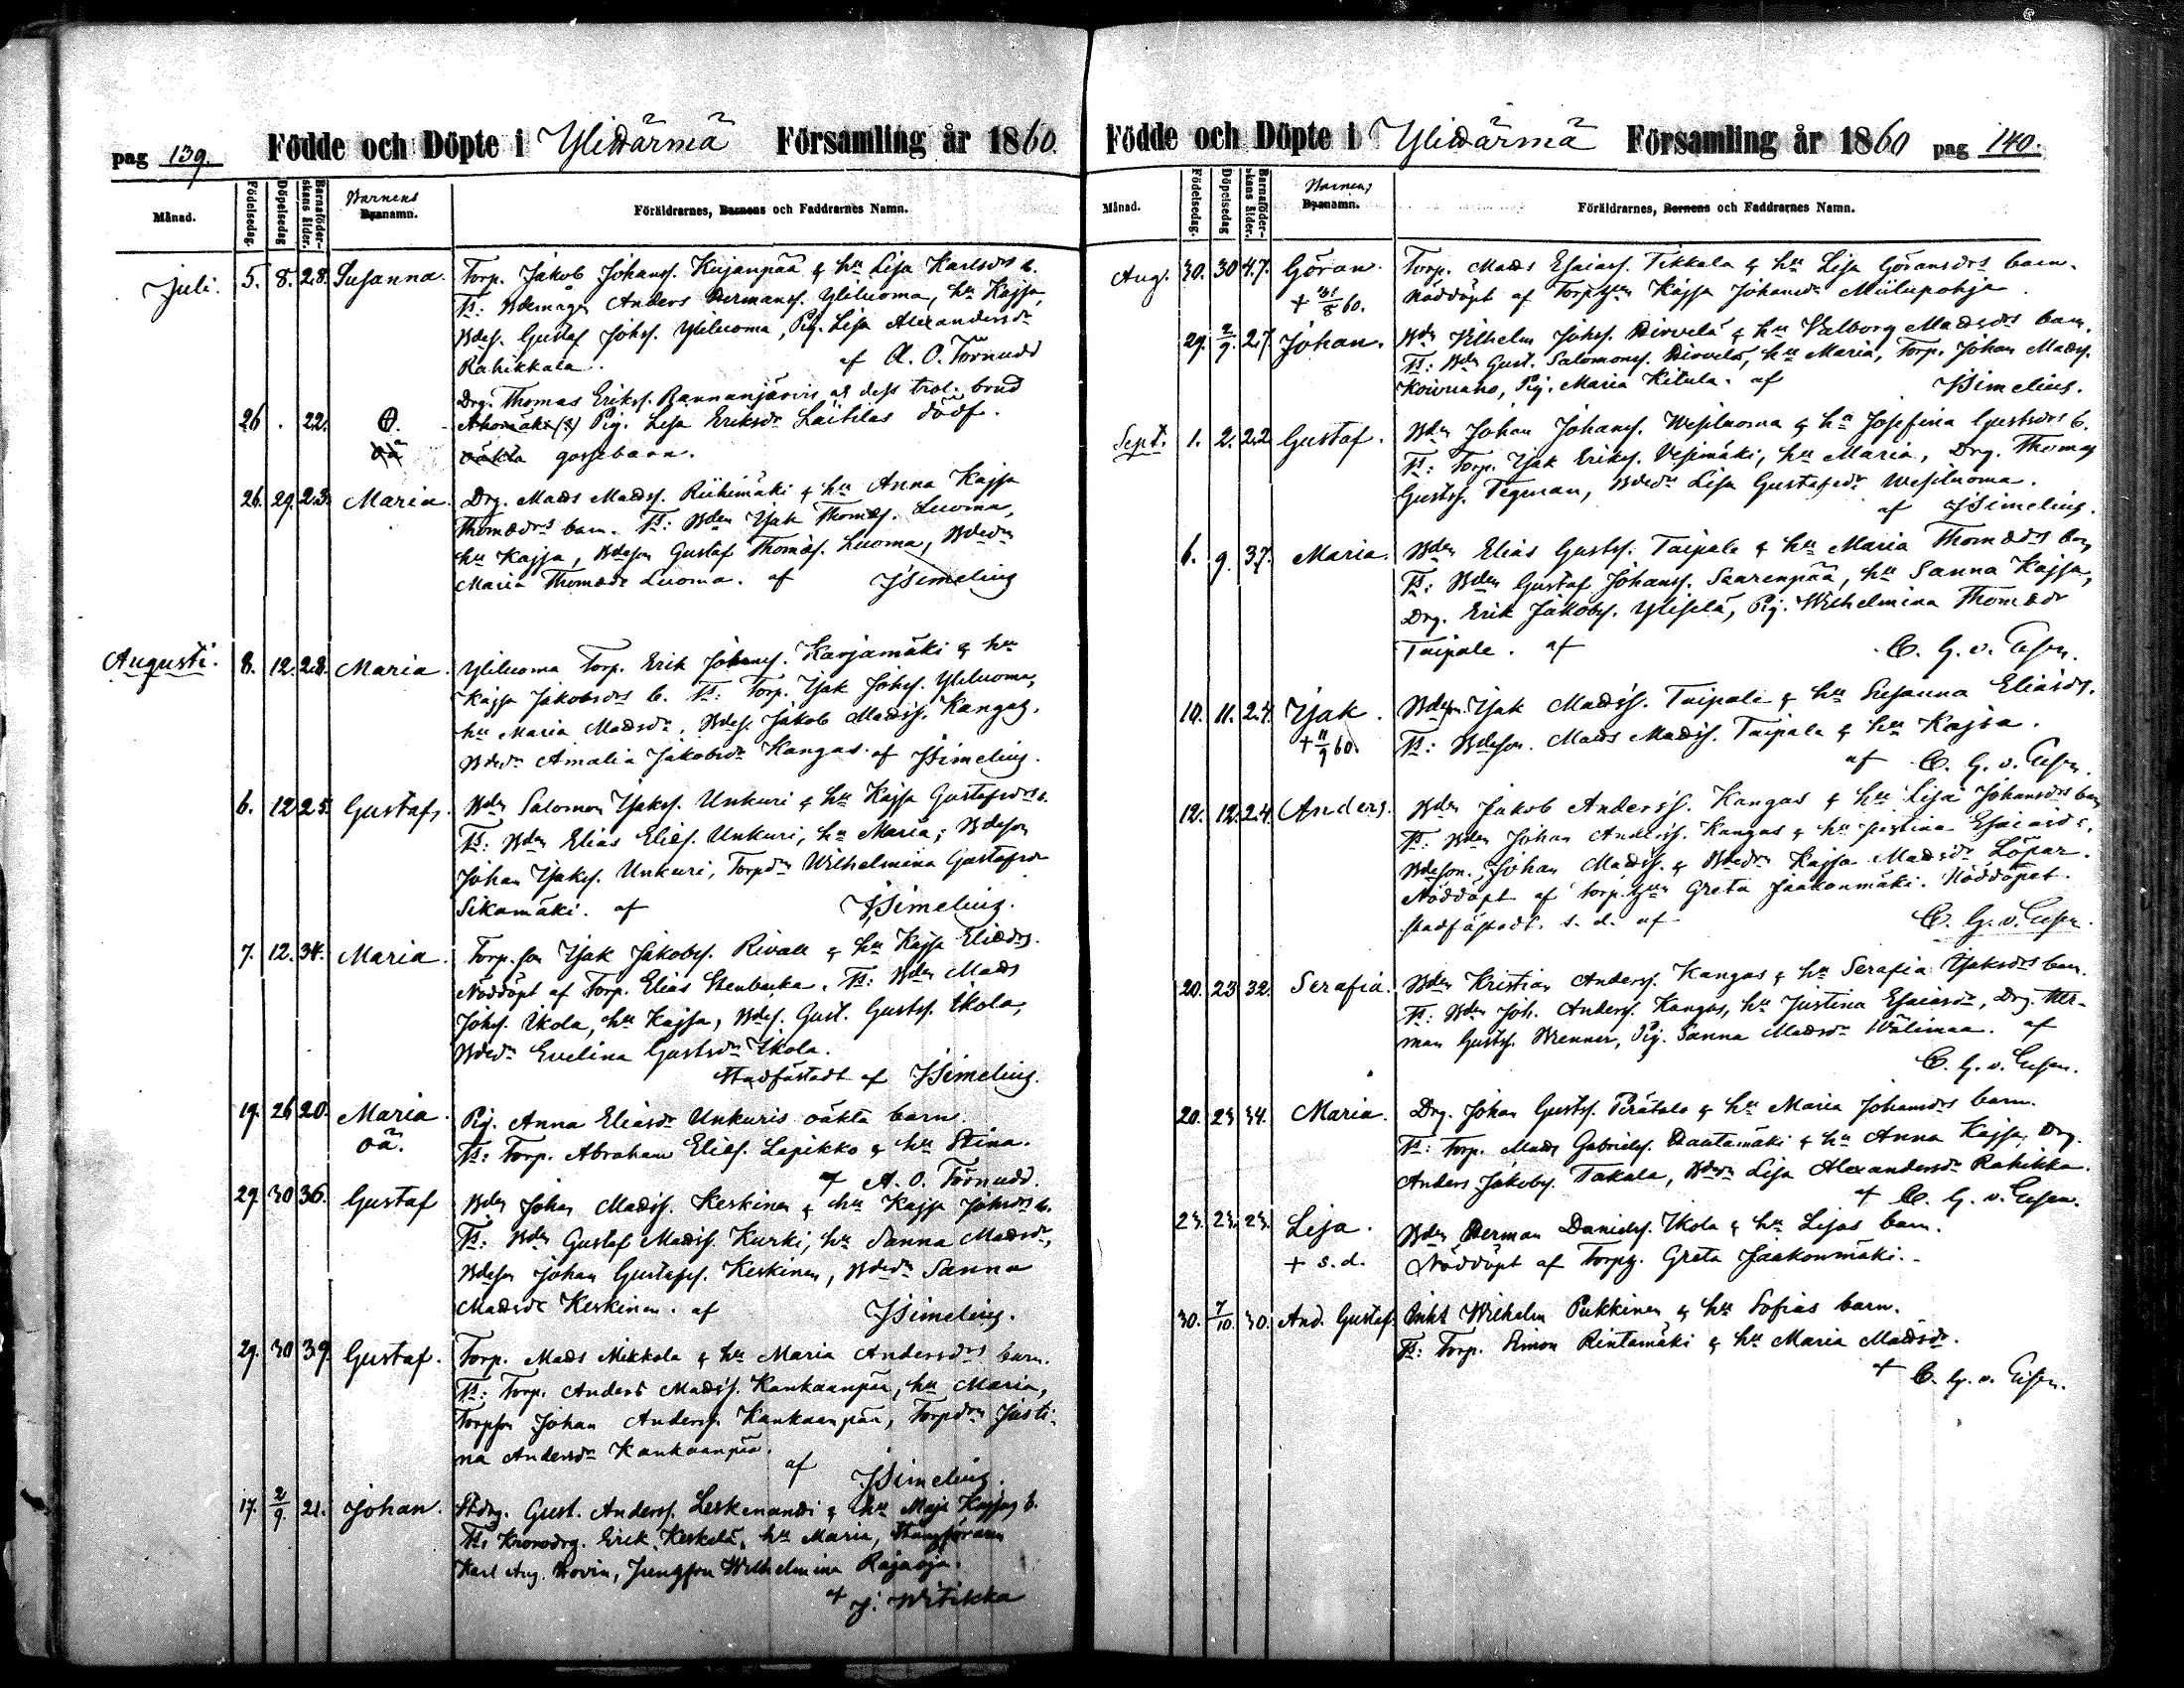 pag 139. Födde och Döpte i Ylihärmä Församling år 1860.
Månad. Födelsedag. Döpelsedag Barnaföderskans ålder. Barnens Byanamn. Föräldrarnes, Barnens och Faddrarnes Namn.
Juli. 5. 8. 28. Susanna. Torp. Jakob Johanss. Kujanpää & hu Lisa Karlsdrs b.
Ts: Anders Hermanss. Yliluoma, hu Kajsa,
Bdes. Gustaf Johss. Yliluoma, Pig. Lisa Alexandersdr
Rahikkala. af A. O. Törnudd
Drg. Thomas Erikss. Bannanjärvis at dess trol. brud
26 . 22. Pig. Lisa Eriksdr Laitilas dödf.
oä oäkta gossebarn.
26. 29. 23. Maria. Drg. Mads Madss. Riihimäki & hu Anna Kajsa
Thomædrs barn. Ts: Bden Isak Thomæs. Luoma,
hu Kajsa, Bdeson Gustaf Thomæs. Luoma, Bdedr
Maria Thomædr Luoma. af I Simelius
Augusti. 8. 12. 28. Maria. Yliluoma Torp. Erik Johanss. Karjamäki & hu
Kajsa Jakobsdrs b. Ts: Torp. Isak Johss. Yliluoma,
hu Maria Madsdr, Bdes. Jakob Madss. Kangas,
Bdedr Amalia Jakobsdr Kangas. af I Simelius.
6. 12 25. Gustaf. Bden Salomon Isakss. Unkuri & hu Kajsa Gustafsdrs b.
Ts: Bden Elias Eliæs. Unkuri, hu Maria; Bdeson
Johan Isakss. Unkuri, Torpdr Wilhelmina Gustafsdr
Sikamäki. af I Simelius.
7. 12. 34. Maria. Torp.son Isak Jakobss. Rivall & hu Kajsa Eliædrs.
Nöddöpt af Torp. Elias Stenbacka. Ts: Bden Mads
Johss. Ikola, hu Kajsa, Bdes. Gust. Gustss. Ikola,
Bdedr Evelina Gustsdr Ikola.
Stadfästadt af I Simelius.
19. 26 20. Maria. Pig. Anna Eliasdr Unkuris oäkta barn.
oä. Ts: Torp. Abraham Eliæs. Lapikko & hu Stina.
af A. O. Törnudd.
29. 30 36. Gustaf Bden Johan Madss. Keskinen & hu Kajsa Johsdrs b.
Ts: Bden Gustaf Madss. Kurki, hu Sanna Madsdr,
Bdeson Johan Gustafss. Keskinen, Bdedr Sanna
Madsdr Keskinen. af I Simelius.
29. 30 39. Gustaf. Torp. Mads Mikkola & hu Maria Andersdrs barn.
Ts: Torp. Anders Madss. Kankaanpää, hu Maria,
Torpson Johan Anderss. Kankaanpää, Torpdrn Justi-
na Andersdr Kankaanpää.
af I Simelius.
17. 2/9 21. Johan. Stdrg. Gust. Anderss. Leskenanti & hu Maja Kajsas b.
Ts: Kronodrg. Erik Keskelä, hu Maria,
Karl Aug. Hovin, Jungfru Wilhelmina Rajaoja.
af J. Witikka
Födde och Döpte i Ylihärmä Församling år 1860 pag 140.
Månad. Födelsedag. Döpelsedag Barnaföderskans ålder. Barnens Byanamn. Föräldrarnes, Barnens och Faddrarnes Namn.
Aug. 30. 30 47. Göran. Torp. Mads Esaiass. Tikkala & hu Lisa Göransdrs barn.
+ 31/8 60. Nöddöpt af Kajsa Johansdr Miilupohja.
29. 2/9. 27. Johan. Bden Wilhelm Johss. Hirvelä & hu Walborg Madsdrs barn.
Ts: Bden Gust. Salomonss. Hirvelä, hu Maria, Torp. Johan Madss.
Koivuaho, Pig. Maria Kitula. af I Simelius.
Sept. 1. 2. 22 Gustaf. Bden Johan Johanss. Wesiluoma & hu Josefina Gustsdrs b.
Ts: Torp. Isak Erikss. Vesimäki, hu Maria, Drg. Thomas
Gustss. Tegman, Bdedr Lisa Gustafsdr Wesiluoma.
af I Simelius.
6. 9. 37. Maria. Bden Elias Gustss. Taipale & hu Maria Thomædrs barn
Ts: Bden Gustaf Johanss. Saarenpää, hu Sanna Kajsa,
Drg. Erik Jakobss. Ylisilä, Pig. Wilhelmina Thomædr
Taipale. af C. G. v. Essen.
10. 11. 24. Isak. Bdeson. Isak Madss. Taipale & hu Susanna Eliasdrs.
+ 11/9 60. Ts: Bdeson. Mads Madss. Taipale & hu Kajsa.
af C. G. v. Essen.
12. 12. 24. Anders. Bden Jakob Anderss. Kangas & hu Lisa Johansdrs barn
Ts: Bden Johan Anderss. Kangas & hu Justina Esaiasdr,
Bdeson. Johan Madss. & Bdedr Kajsa Madsdr Löpar.
Nöddöpt af Greta Jaakonmäki. Nöddopet
stadfästadt. s. d. af C. G. v. Essen.
20. 23 32. Serafia. Bden Kristian Anderss. Kangas & hu Serafia Isaksdrs barn.
Ts: Bden Joh. Anderss. Kangas, hu Justina Esaiasdr, Drg. Her-
man Gustss. Brenner, Pig. Sanna Madsdr Wälimaa. af
C. G. v. Essen.
20. 23 34. Maria. Drg. Johan Gustss. Perätalo & hu Maria Johansdrs barn.
Ts: Torp. Mads Gabrielss. Hautamäki & hu Anna Kajsa, Drg.
Anders Jakobss. Takala, Bdedr Lisa Alexandersdr Rahikka.
af C. G. v. Essen.
23. 23. 23. Lisa. Bden Herman Danielss. Ikola & hu Lisas barn.
+ s. d. Nöddöpt af Torpg. Greta Jaakonmäki.
30. 7/10. 30. And. Gustaf. Inhs Wilhelm Pukkinen & hu Sofias barn.
Ts: Torp. Simon Rintamäki & hu Maria Madsdr.
af C. G. v. Essen.